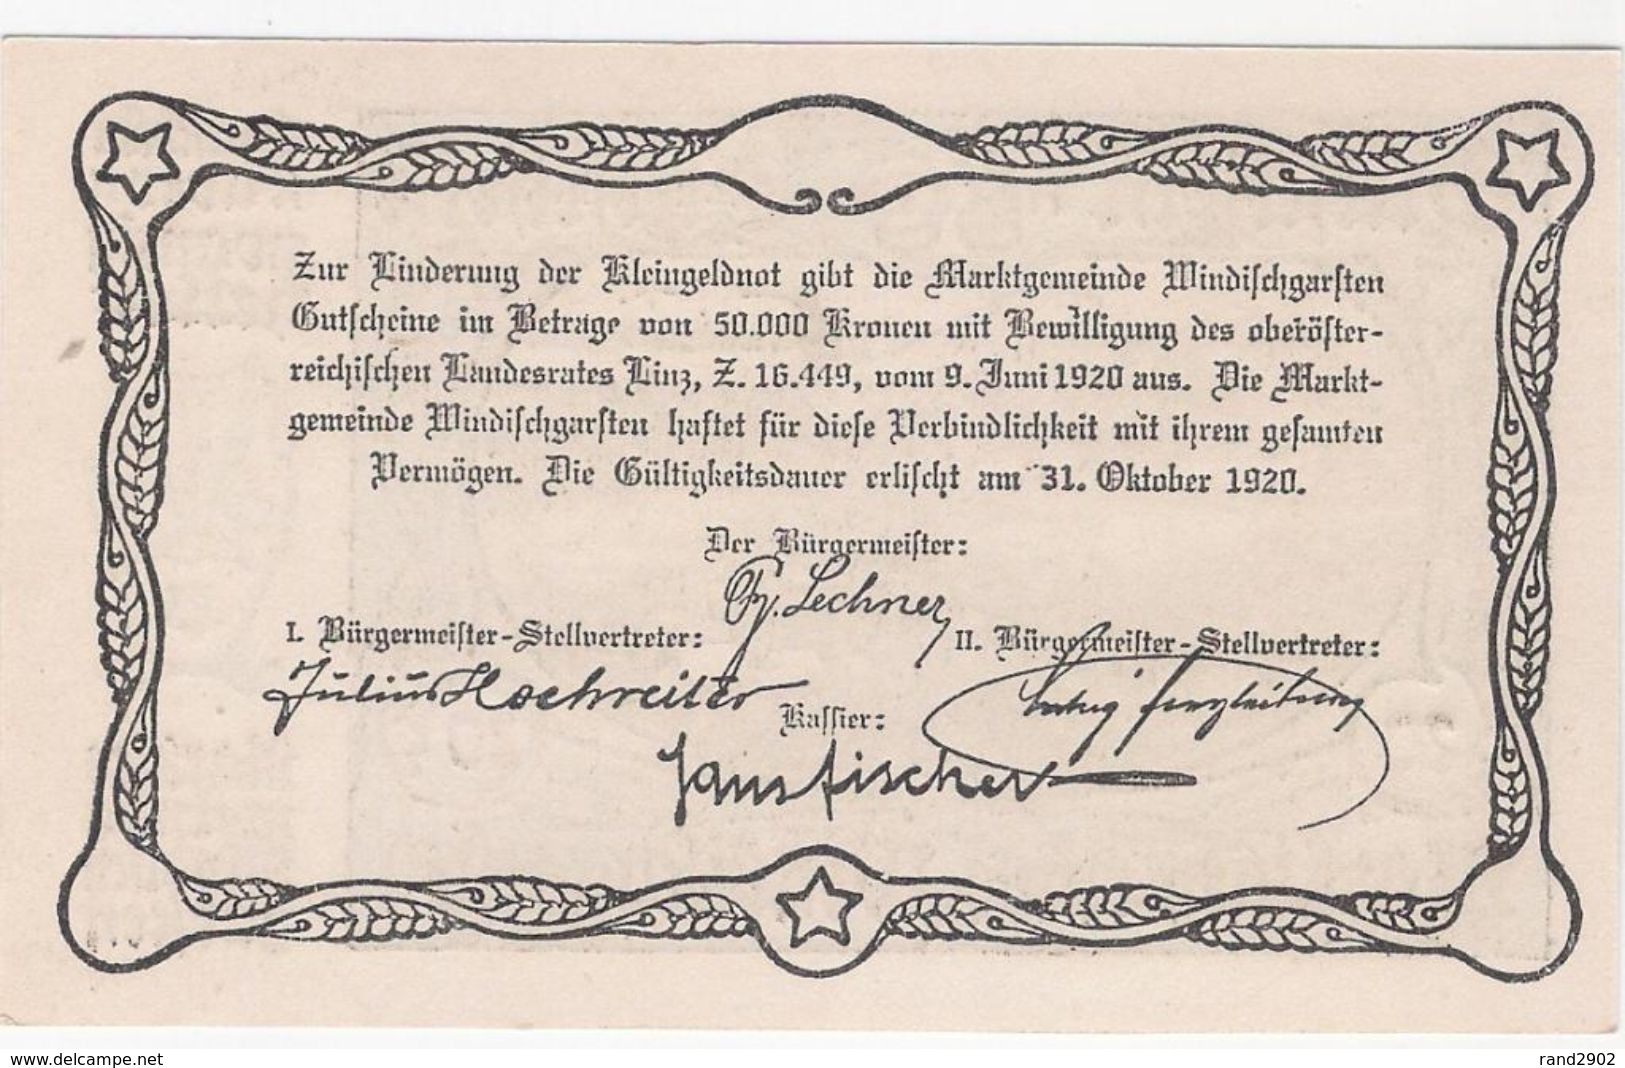 Zur Linderung der Kleingeldnot gibt die Marktgemeinde Windischgarsten
Gutscheine im Betrage von 50.000 Kronen mit Bewilligung des oberöster-
reichischen Landesrates Linz, Z. 16.449, vom 9. Juni 1920 aus. Die Markt-
gemeinde Windischgarsten haftet für diese Verbindlichkeit mit ihrem gesamten
Vermögen. Die Gültigkeitsdauer erlischt am 31. Oktober 1920.
Der Bürgermeister:
Lechner
I. Bürgermeister-Stellvertreter:
II. Bürgermeister-Stellvertreter:
Julius Hochreiter
Kassier:
Hans Fischer
www.delcampe.net
rand2902